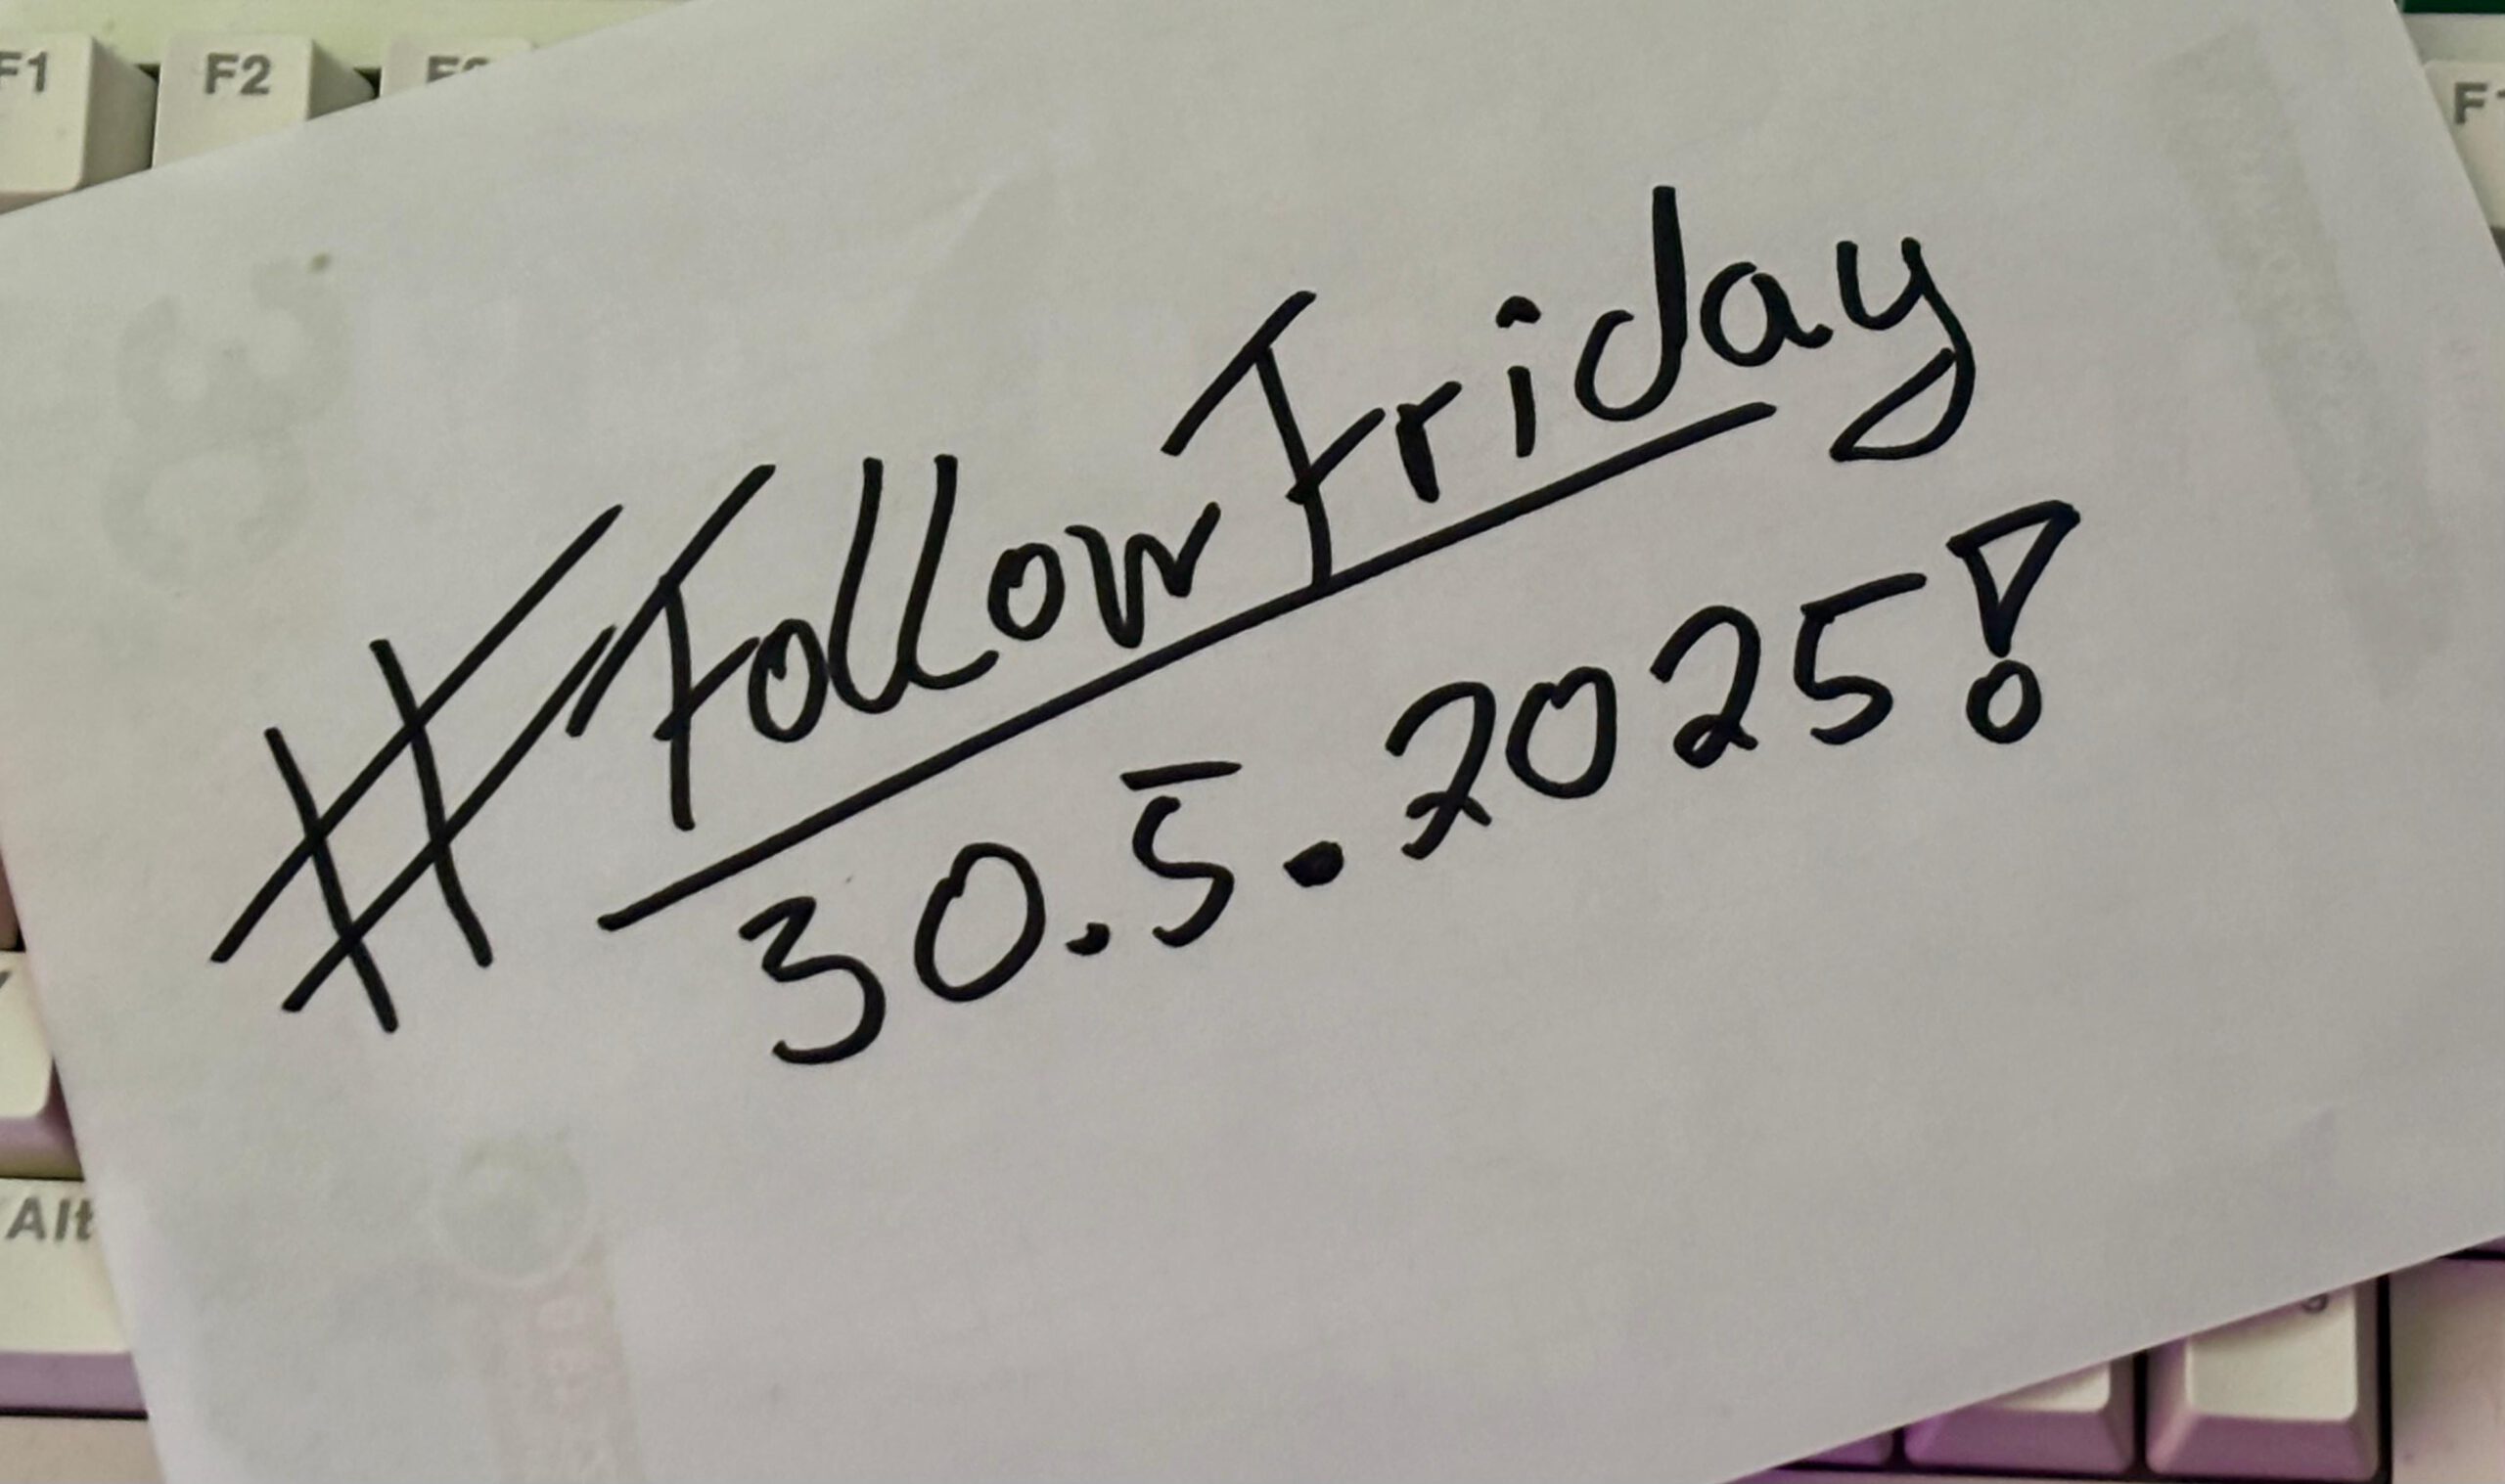 F1 F2
#FollowFriday
30.5.2025!
Alt